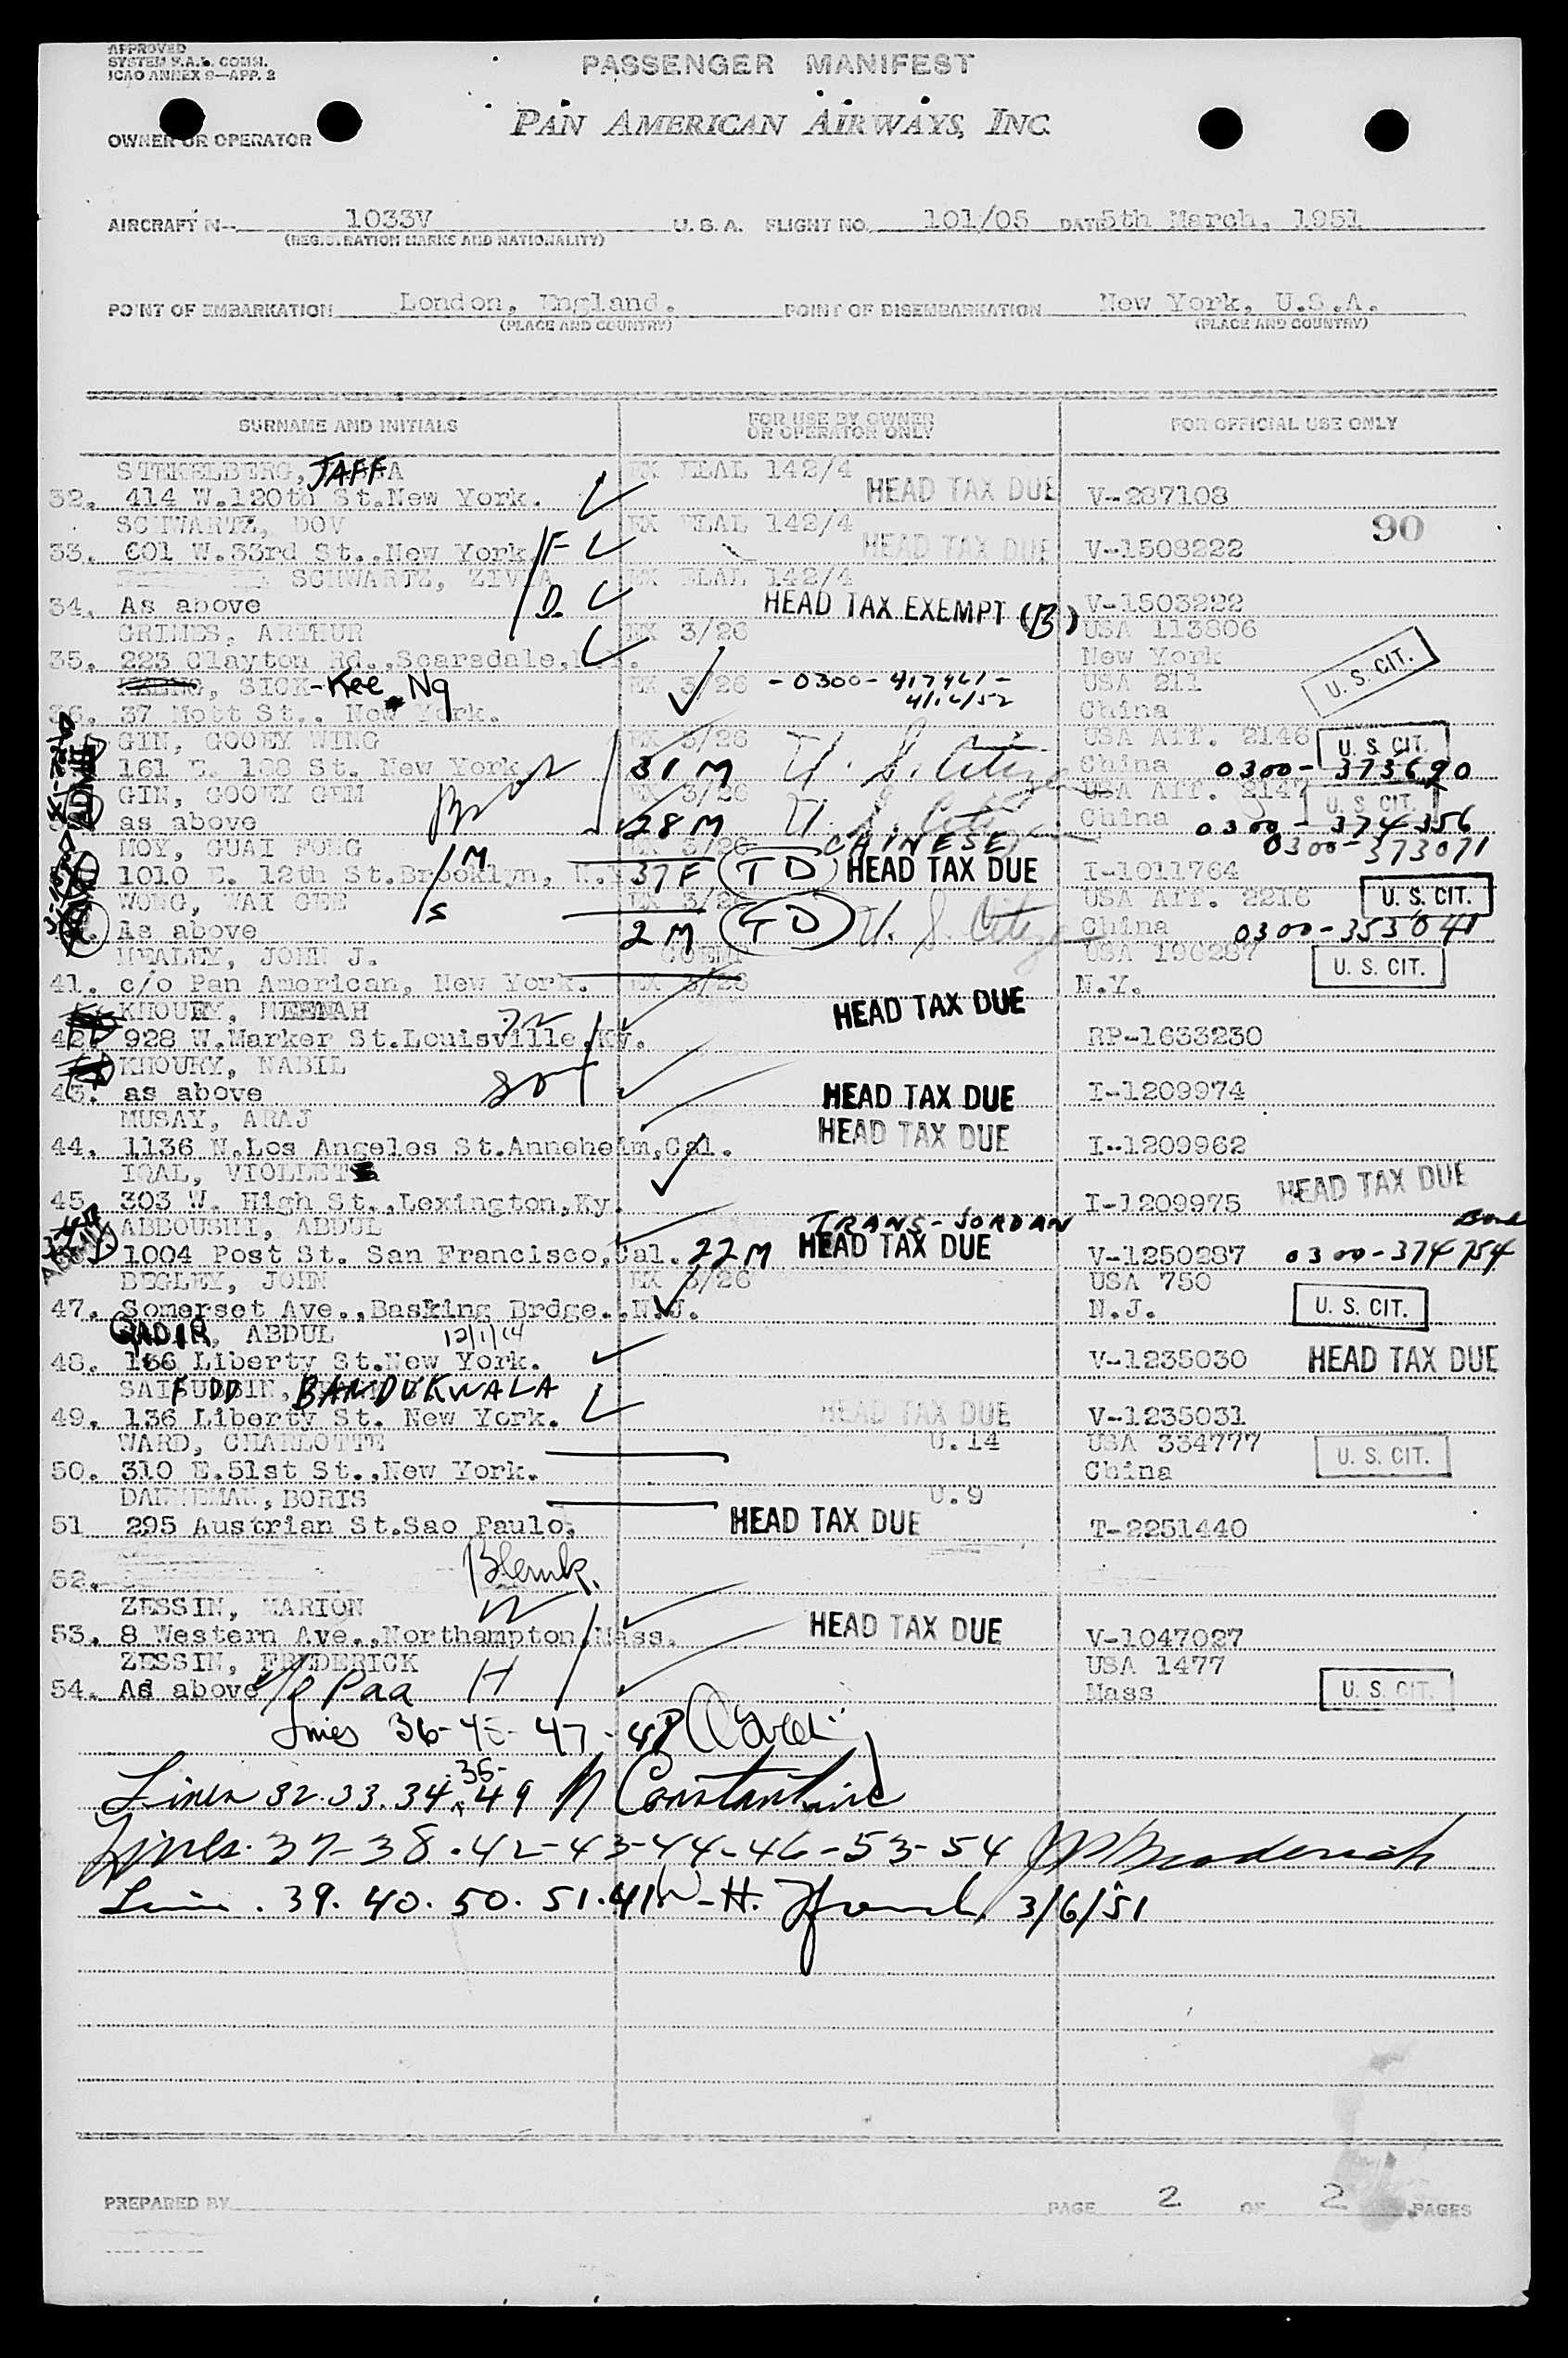 APPROVED
SYSTEM F.A.L. COMM.
ICAO ANNEX 9—APP. 2
PASSENGER MANIFEST
OWNER OR OPERATOR
PAN AMERICAN AIRWAYS, INC.
AIRCRAFT N-- 1033V U. S. A. FLIGHT NO. 101/05 DATE 5th March, 1951
(REGISTRATION MARKS AND NATIONALITY)
POINT OF EMBARKATION London, England. POINT OF DISEMBARKATION New York, U.S.A.
(PLACE AND COUNTRY) (PLACE AND COUNTRY)
SURNAME AND INITIALS FOR USE BY OWNER OR OPERATOR ONLY FOR OFFICIAL USE ONLY
JAFFA EX ELAL 142/4
32. 414 W.120th St.New York. HEAD TAX DUE V-287108
SCHWARTZ, DOV EX ELAL 142/4 90
33. 601 W.33rd St.,New York. F HEAD TAX DUE V-1503222
SCHWARTZ, ZIVIA EX ELAL 142/4
34. As above D. HEAD TAX EXEMPT (B) V-1503222
GRIMES, ARTHUR EX 3/26 USA 113806
35. 223 Clayton Rd.,Scarsdale,N.Y. New York U.S. CIT.
SICK-Kee Ng EX 3/26 -0300-417961- USA 211
36. 37 Mott St., New York. China
GIN, GOOEY WING EX 3/26 U. S. Citizen USA Aff. 2146 U. S. CIT.
161 E. 188 St. New York 31 M China 0300-373690
GIN, GOOEY GEM EX 3/26 U. S. Citizen USA Aff. 2147 U. S. CIT.
as above 28 M China 0300-374356
MOY, GUAI FONG M EX 3/26 CHINESE 0300-373071
1010 E. 12th St.Brooklyn, N.Y 37 F TD HEAD TAX DUE I-1011764
WONG, WAI GEE S EX 3/26 USA Aff. 2216 U. S. CIT.
As above 2 M TD U. S. Citizen China 0300-353041
HEALEY, JOHN J. COEMP USA 196287 U. S. CIT.
41. c/o Pan American, New York. EX 3/26 N.Y.
KHOURY, HEENAH HEAD TAX DUE
42. 928 W.Marker St.Louisville,Ky. RP-1633230
KHOURY, NABIL
43. as above Son HEAD TAX DUE I-1209974
MUSAY, ARAJ HEAD TAX DUE
44. 1136 N.Los Angeles St.Anneheim,Cal. I-1209962
IQAL, VIOLLET HEAD TAX DUE
45. 303 W. High St.,Lexington,Ky. I-1209975
ABDOUSHI, ABDUL TRANS-JORDAN
1004 Post St. San Francisco,Cal. 22 M HEAD TAX DUE V-1250287 0300-374754
BEGLEY, JOHN EX 3/26 USA 750
47. Somerset Ave.,Basking Brdge.,N.J. N.J. U. S. CIT.
QADIR, ABDUL 12/1/14
48. 136 Liberty St.New York. V-1235030 HEAD TAX DUE
SAIFUDDIN, BANDUKWALA
49. 136 Liberty St. New York. HEAD TAX DUE V-1235031
WARD, CHARLOTTE U.14 USA 334777
50. 310 E.51st St.,New York. China U. S. CIT.
BORIS U.9
51 295 Austrian St.Sao Paulo. HEAD TAX DUE T-2251440
52. Blank.
ZESSIN, MARION W
53. 8 Western Ave.,Northampton,Mass. HEAD TAX DUE V-1047027
ZESSIN, FREDERICK USA 1477
54. As above c/o Paa H Mass U. S. CIT.
Lines 36-45-47-48
35-
Lines 32.33.34.49 Constantine
Lines. 37-38.42-43-44-46-53-54
39. 40. 50. 51. 41 3/6/51
PREPARED BY PAGE 2 OF 2 PAGES